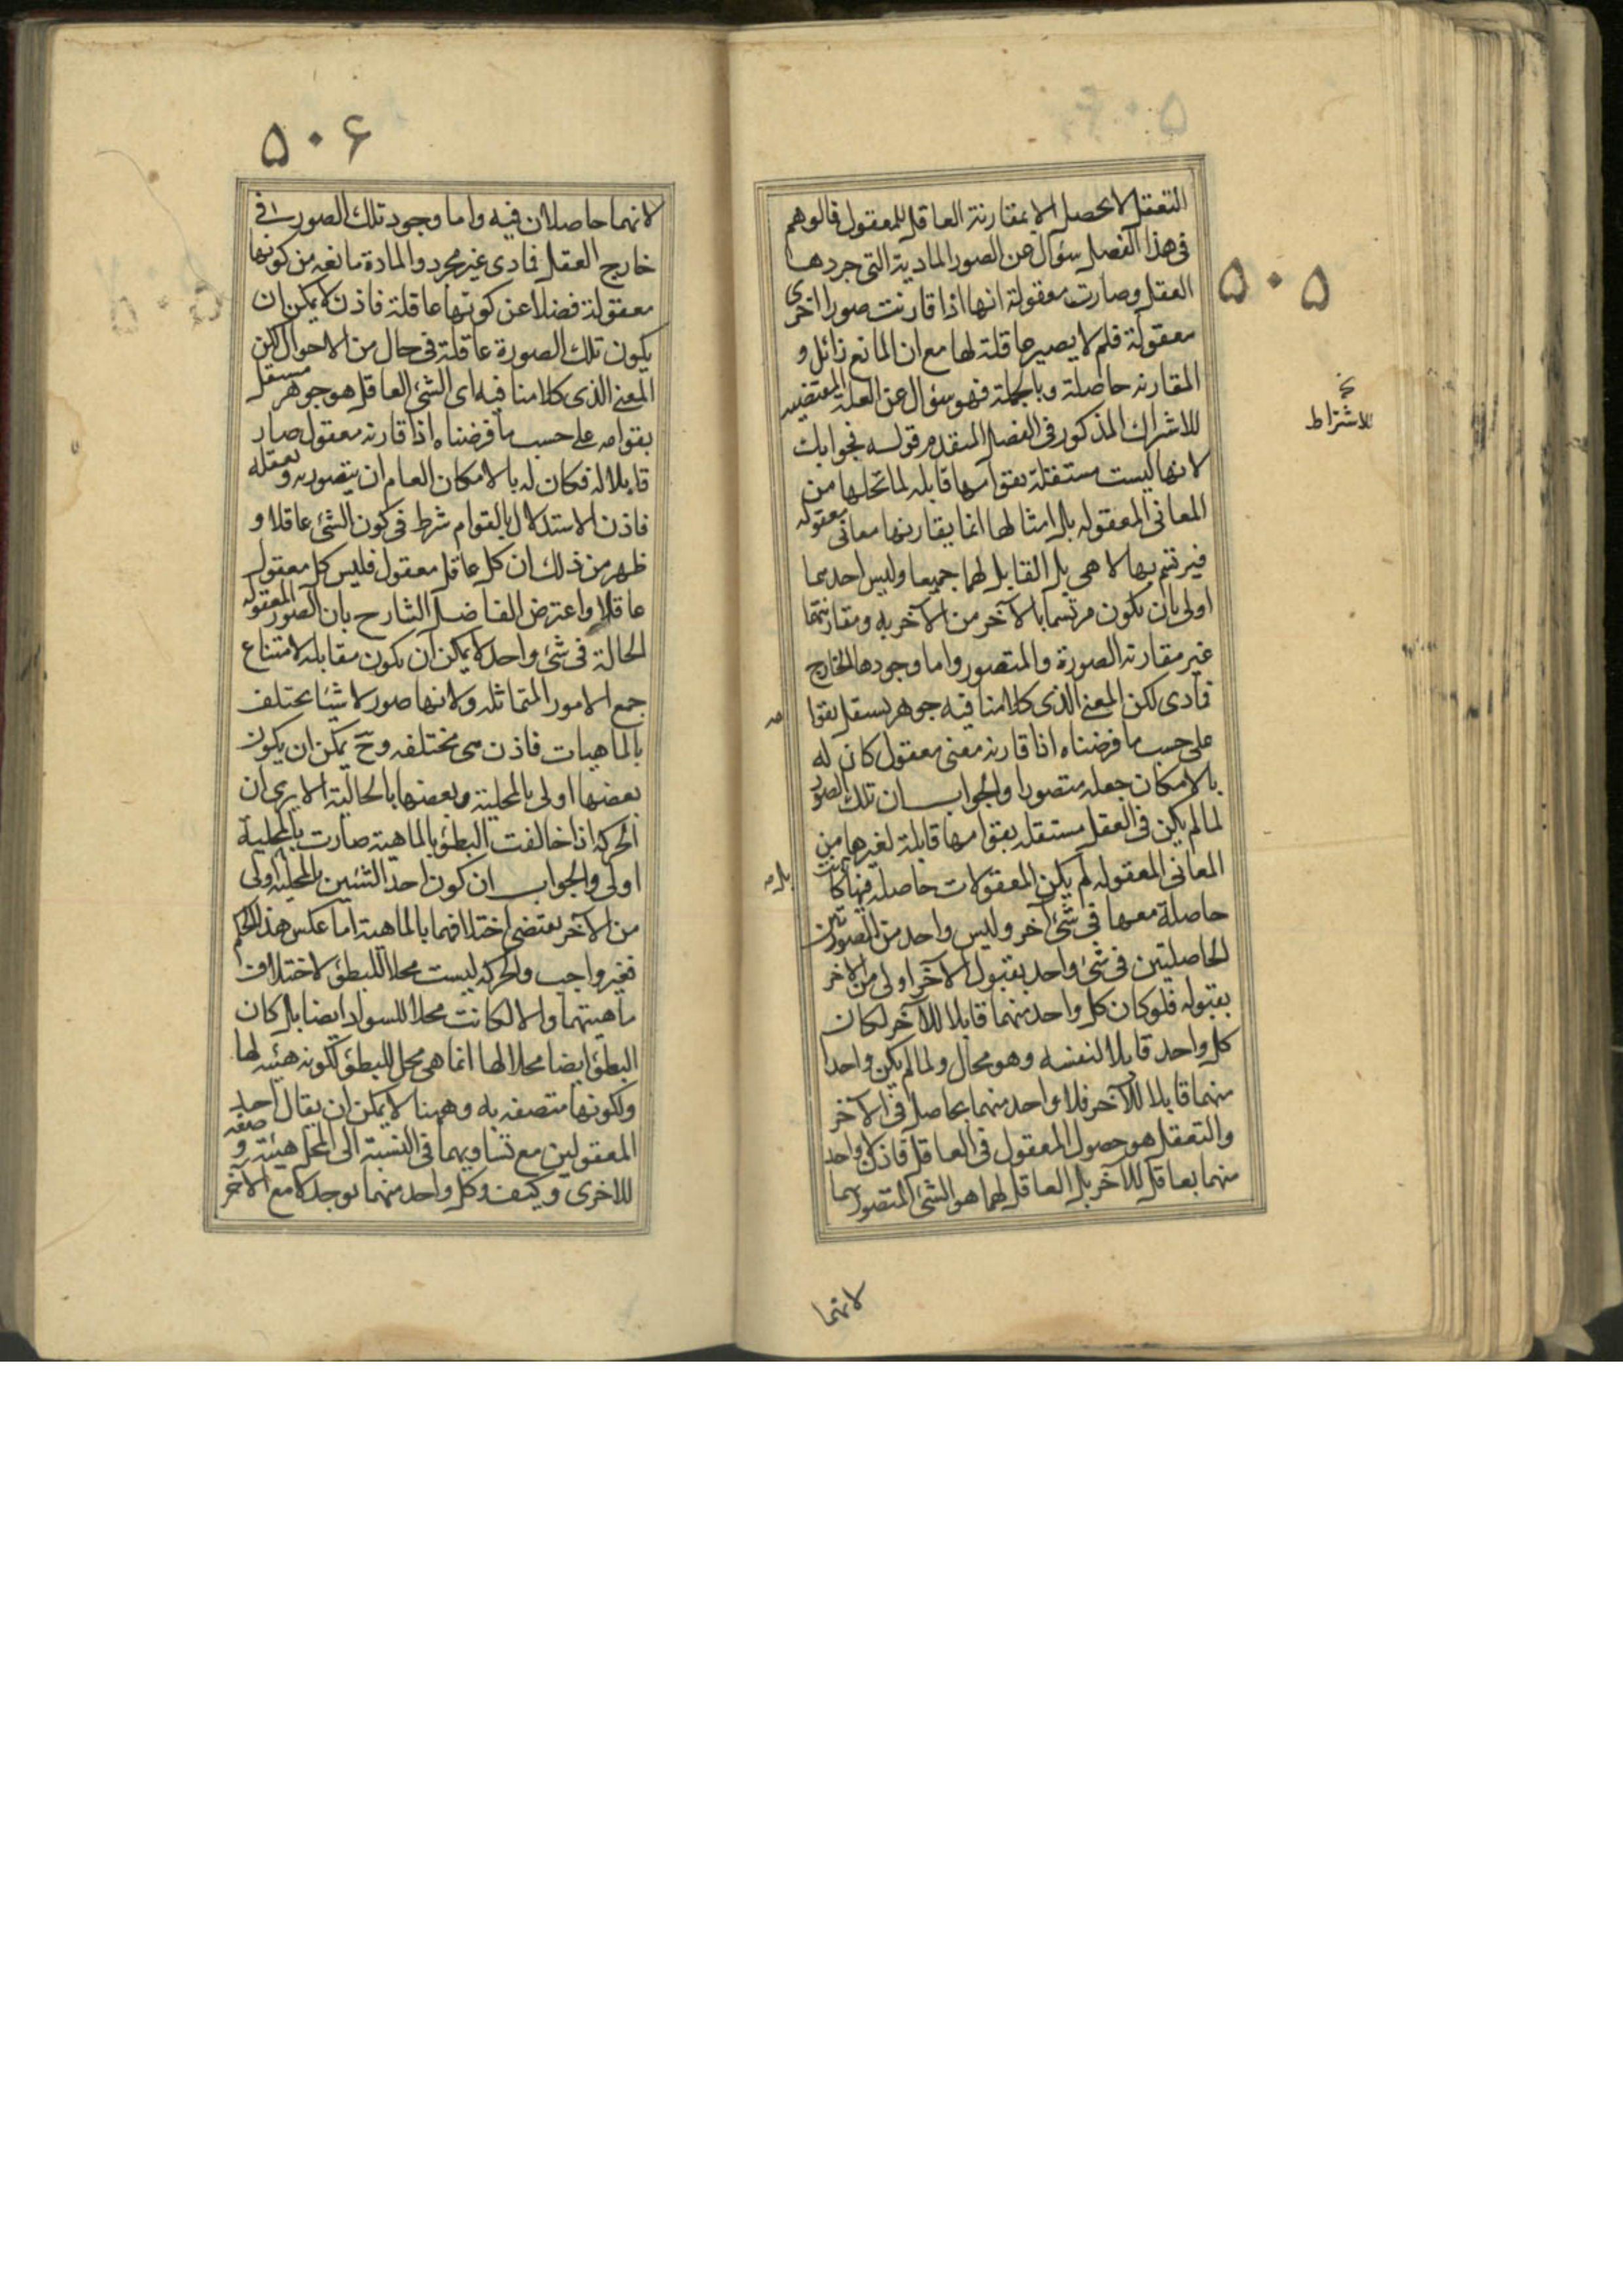 ۵۰۵
التعقل لا يحصل الا بمقارنة العاقل للمعقول فالوهم
فى هذا الفصل سؤال عن الصور المادية التى جردها
العقل وصارت معقولة انها اذا قارنت صورا اخرى
معقولة فلم لا يصير عاقلة لها مع ان المانع زائل و
المقارنه حاصلة وبالجملة فهو سؤال عن العلة المقتضيه
للاشراك المذكور فى الفصل المتقدم قوله فجوابك
لانها ليست مستقلة بقوامها قابله لما تحلها من
المعانى المعقوله بل امثالها انما يقارنها معانى معقوله
فيرتسم بها لا هى بل القابل لهما جميعا وليس احدهما
اولى بان يكون مرتسما بالآخر من الآخر به ومقارنتهما
غير مقارنه الصورة والمتصور واما وجودها الخارج
فمادى لكن المعنى الذى كلامنا فيه جوهر يستقل بقوا
على حسب ما فرضناه اذا قارنه معنى معقول كان له
بالامكان جعله متصورا والجواب ان تلك الصور
لما لم يكن فى العقل مستقله بقوامها قابلة لغيرها من
المعانى المعقوله لم يكن المعقولات حاصله فيها كانت
حاصلة معها فى شئ آخر وليس واحد من الصورتين
الحاصلتين فى شئ واحد بقبول الآخر اولى من الاخر
بقبوله فلو كان كل واحد منهما قابلا للآخر لكان
كل واحد قابلا لنفسه وهو محال ولما لم يكن واحدا
منهما قابلا للآخر فلا واحد منهما بحاصل فى الآخر
والتعقل هو حصول المعقول فى العاقل فاذن لا واحد
منهما بعاقل للآخر بل العاقل لهما هو الشئ المتصور بهما
للاشتراط
مه
بل
لانهما
۵۰۶
لانهما حاصلان فيه واما وجود تلك الصور فى
خارج العقل فمادى غير مجرد والمادة مانعه من كونها
معقولة فضلا عن كونها عاقلة فاذن لا يمكن ان
يكون تلك الصورة عاقلة فى حال من الاحوال لكن
المعنى الذى كلامنا فيه اى الشئ العاقل هو جوهر مستقل
بقوامه على حسب ما فرضناه اذا قارنه معقول صار
قابلا له فكان له بالامكان العام ان يتصور به وتعقله
فاذن الاستدلال بالقوام شرط فى كون الشئ عاقلا و
ظهر من ذلك ان كل عاقل معقول فليس كل معقول
عاقلا واعترض الفاضل الشارح بان الصور المعقوله
الحالة فى شئ واحد لا يمكن ان يكون مقابله لامتناع
جمع الامور المتماثله ولانها صور لاشيا يختلف
بالماهيات فاذن هى مختلفه وح يمكن ان يكون
بعضها اولى بالمحلية وبعضها بالحالية الا يرى ان
الحركه اذا خالفت البطؤ بالماهية صارت بالمحلية
اولى والجواب ان كون احد الشئين بالمحلية اولى
من الآخر يقتضى اختلافهما بالماهية اما عكس هذا الحكم
فغير واجب والحركه ليست محلا للبطؤ لاختلاف
ماهيتهما والا لكانت محلا للسواد ايضا بل كان
البطؤ ايضا محلا لها انما هى محل للبطؤ لكونه هيئه لها
ولكونها متصفه به وههنا لا يمكن ان يقال احد
المعقولين مع تساويهما فى النسبة الى المحل هيئة و صفه
للاخرى وكيف وكل واحد منهما يوجد لا مع الآخر